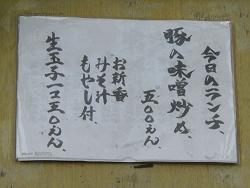 今日のランチ
豚の味噌炒め、
五〇〇えん、
お新香
みそ汁
もやし付、
生玉子一コ五〇えん、